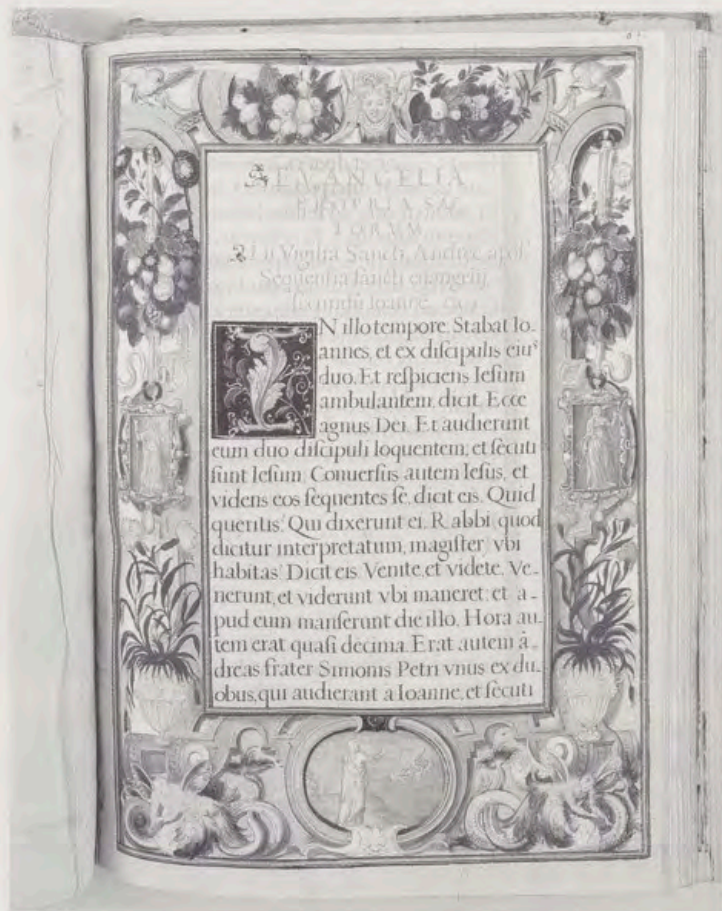 EVANGELIA
PROPRIA SAN
TORVM
In Vigilia Sancti Andreę apol
Sequentia sancti euangelij
secundũ Ioanne.
IN illo tempore. Stabat Io-
annes, et ex discipulis eiuˢ
duo. Et respiciens Iesum
ambulantem, dicit. Ecce
agnus Dei. Et audierunt
eum duo discipuli loquentem, et secuti
sunt Iesum. Conuersus autem Iesus, et
videns eos sequentes se, dicit eis. Quid
queritis? Qui dixerunt ei. Rabbi, quod
dicitur interpretatum, magister, vbi
habitas? Dicit eis. Venite, et videte. Ve-
nerunt, et viderunt vbi maneret: et a-
pud eum manserunt die illo. Hora au-
tem erat quasi decima. Erat autem ã-
dreas frater Simonis Petri vnus ex du-
obus, qui audierant a Ioanne, et secuti